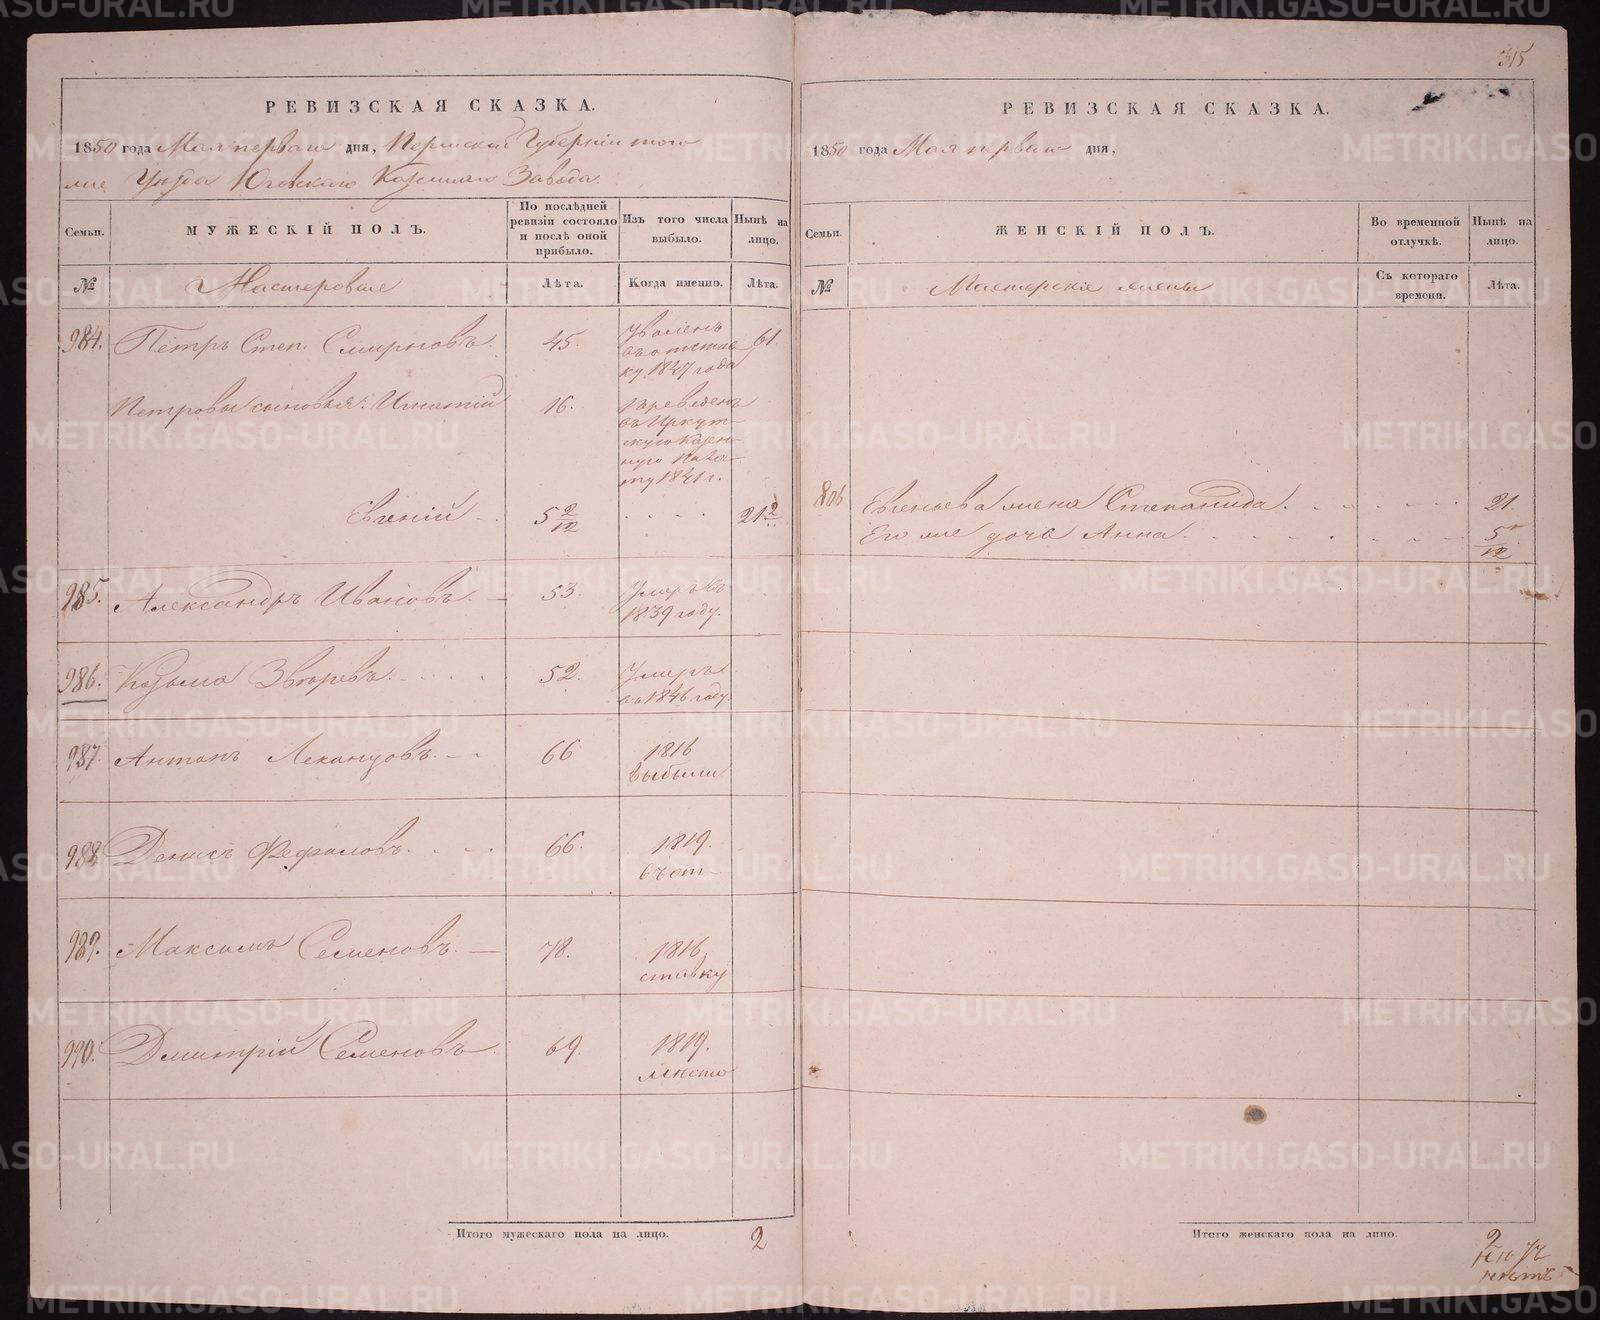 315
РЕВИЗСКАЯ СКАЗКА.
1850 года Мая перваго дня, Пермской Губерніи того
же Уезда Юговскаго Казеннаго Завода.
Семьи.
МУЖЕСКІЙ ПОЛЪ.
По послѣдней ревизіи состояло и послѣ оной прибыло.
Изъ того числа выбыло.
Нынѣ на лицо.
№
Мастеровые
Лѣта.
Когда именно.
Лѣта.
984. Петръ Степ. Смирновъ. 45. Уволенъ въ отставку 1847 года 61
Петровы сыновья: Игнатій 16. Переведенъ въ Иркутскую казенную Палату 1841 г.
Евгеній 5 2/12 . . . . 21 2
985. Александръ Ивановъ. 53. Умеръ въ 1839 году.
986. Козьма Звѣревъ. 52. Умеръ въ 1846 году.
987. Антонъ 66 1816 выбыли
988 Денисъ Фефиловъ. 66. 1819. въ от-
989. Максимъ Семеновъ. 78. 1816 ставку
990. Дмитрій Семеновъ. 69. 1819. мѣсто
Итого мужескаго пола на лицо. 2
РЕВИЗСКАЯ СКАЗКА.
1850 года Мая перваго дня,
Семьи.
ЖЕНСКІЙ ПОЛЪ.
Во временной отлучкѣ.
Нынѣ на лицо.
№
Мастерскія жены
Съ котораго времени.
Лѣта.
806 Евгеньева жена Степанида. 21.
Его же дочь Анна. 5/12
Итого женскаго пола на лицо. 2
METRIKI.GASO-URAL.RU